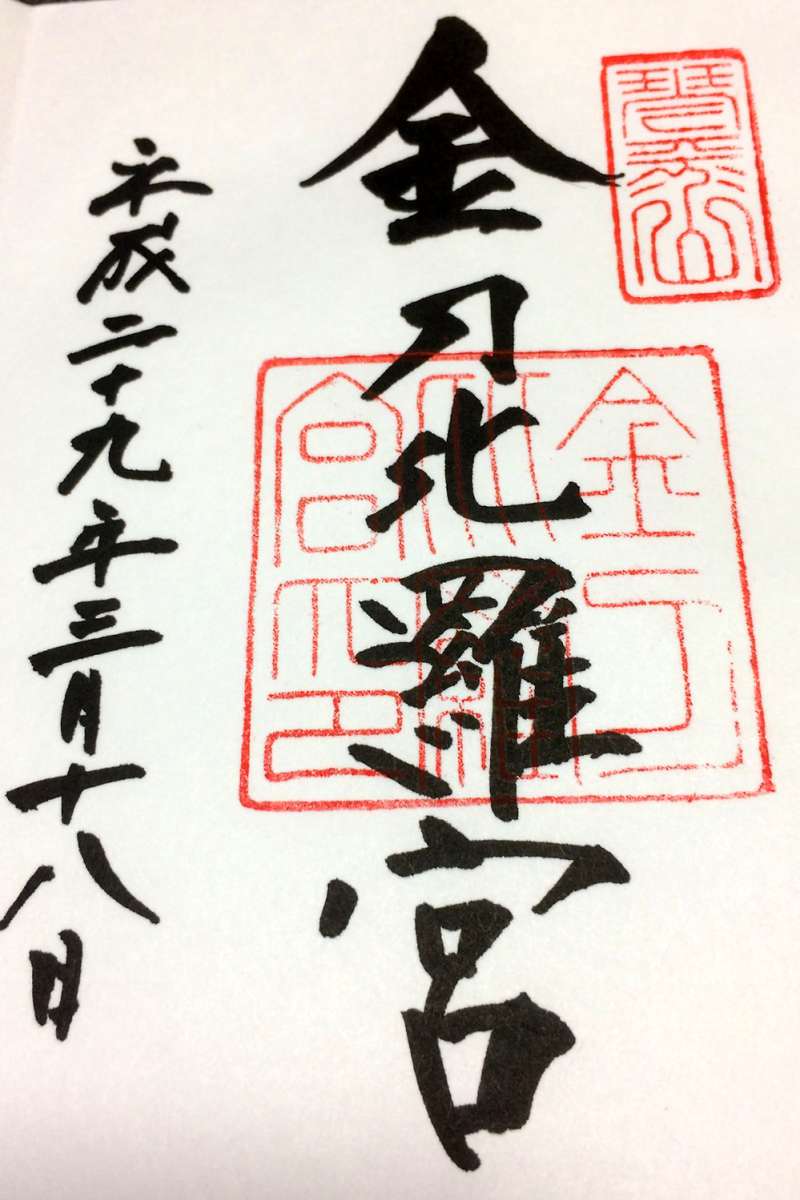 琴平山
金刀比羅宮
金刀
比羅
宮之印
平成二十九年三月十八日